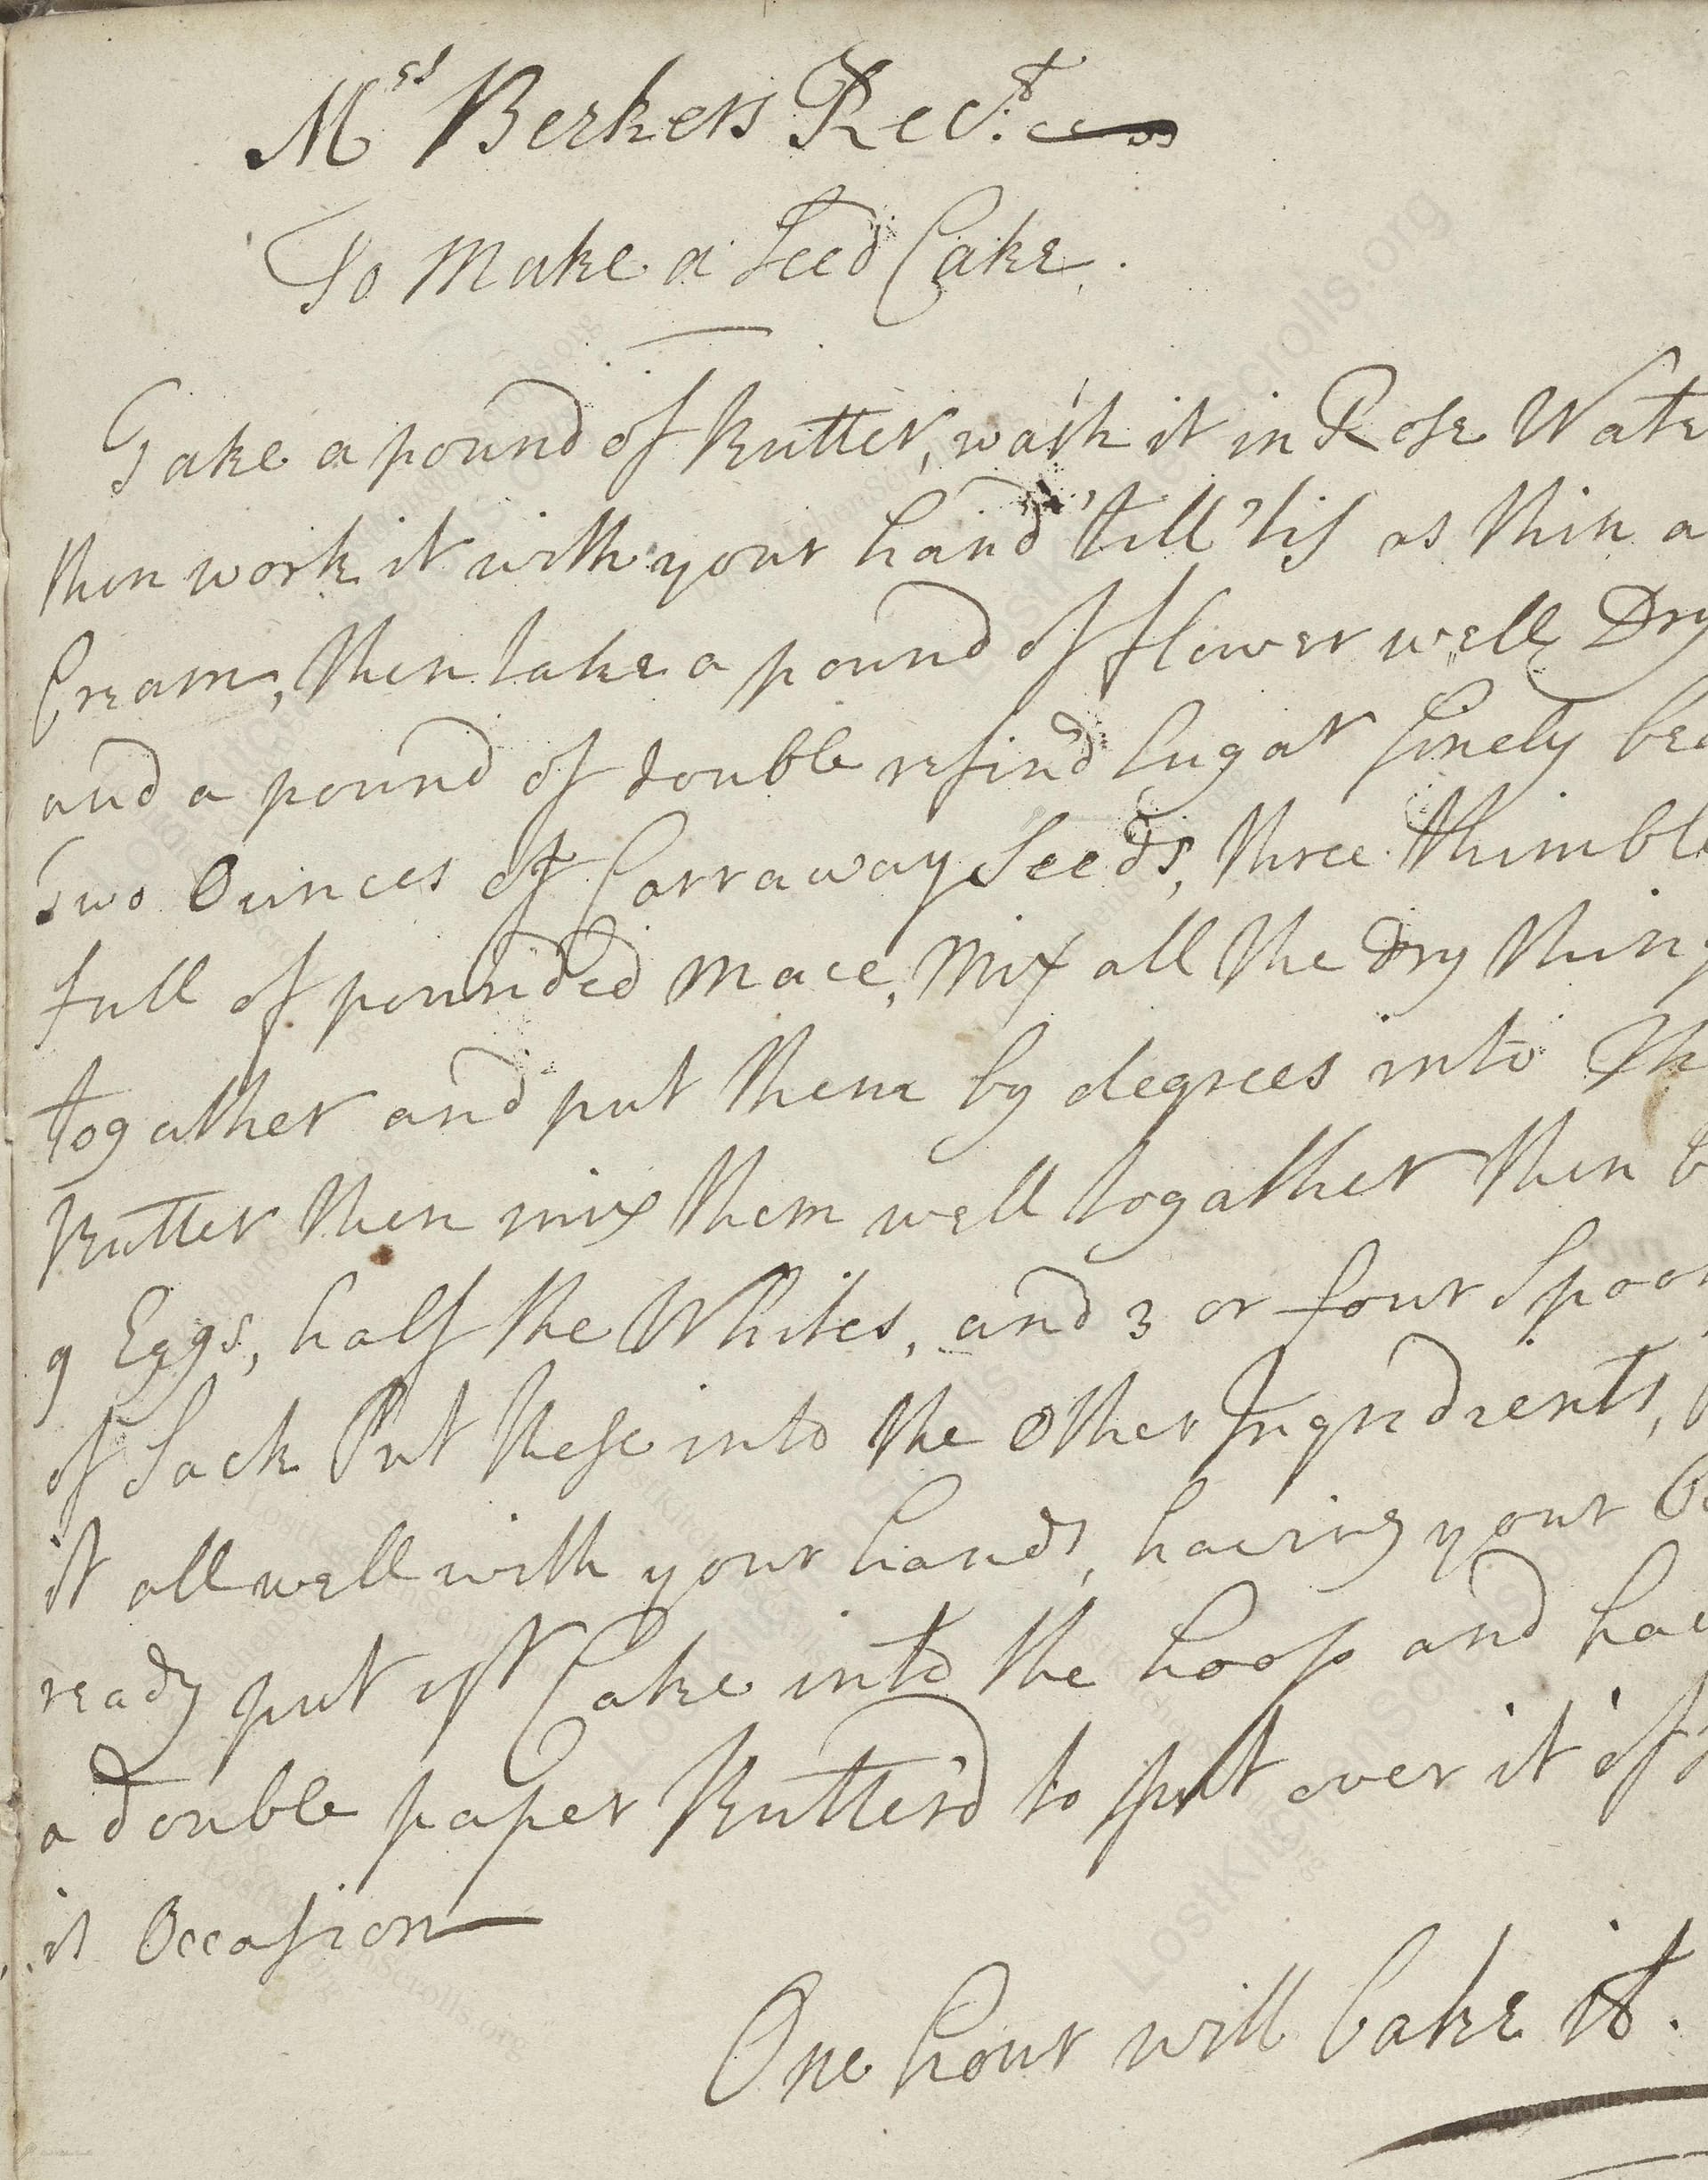 Mrs Berkers Rect.
To Make a Seed Cake.
Take a pound of Butter, wash it in Rose Wate
then work it with your hand 'till 'tis as thin a
Cream, then take a pound of flower well Dry
and a pound of double refin'd Sugar finely bea
Two Ounces of Carraway Seeds, three thimble
full of pounded Mace, Mix all the Dry thing
togather and put them by degrees into th
Butter then mix them well togather then b
9 Eggs, half the Whites, and 3 or four Spoon
of Sack Put these into the other Ingredients,
it all well with your hands, having your O
ready put yr Cake into the hoop and hav
a double paper Butter'd to put over it if
is Occasion
One hour will bake it.